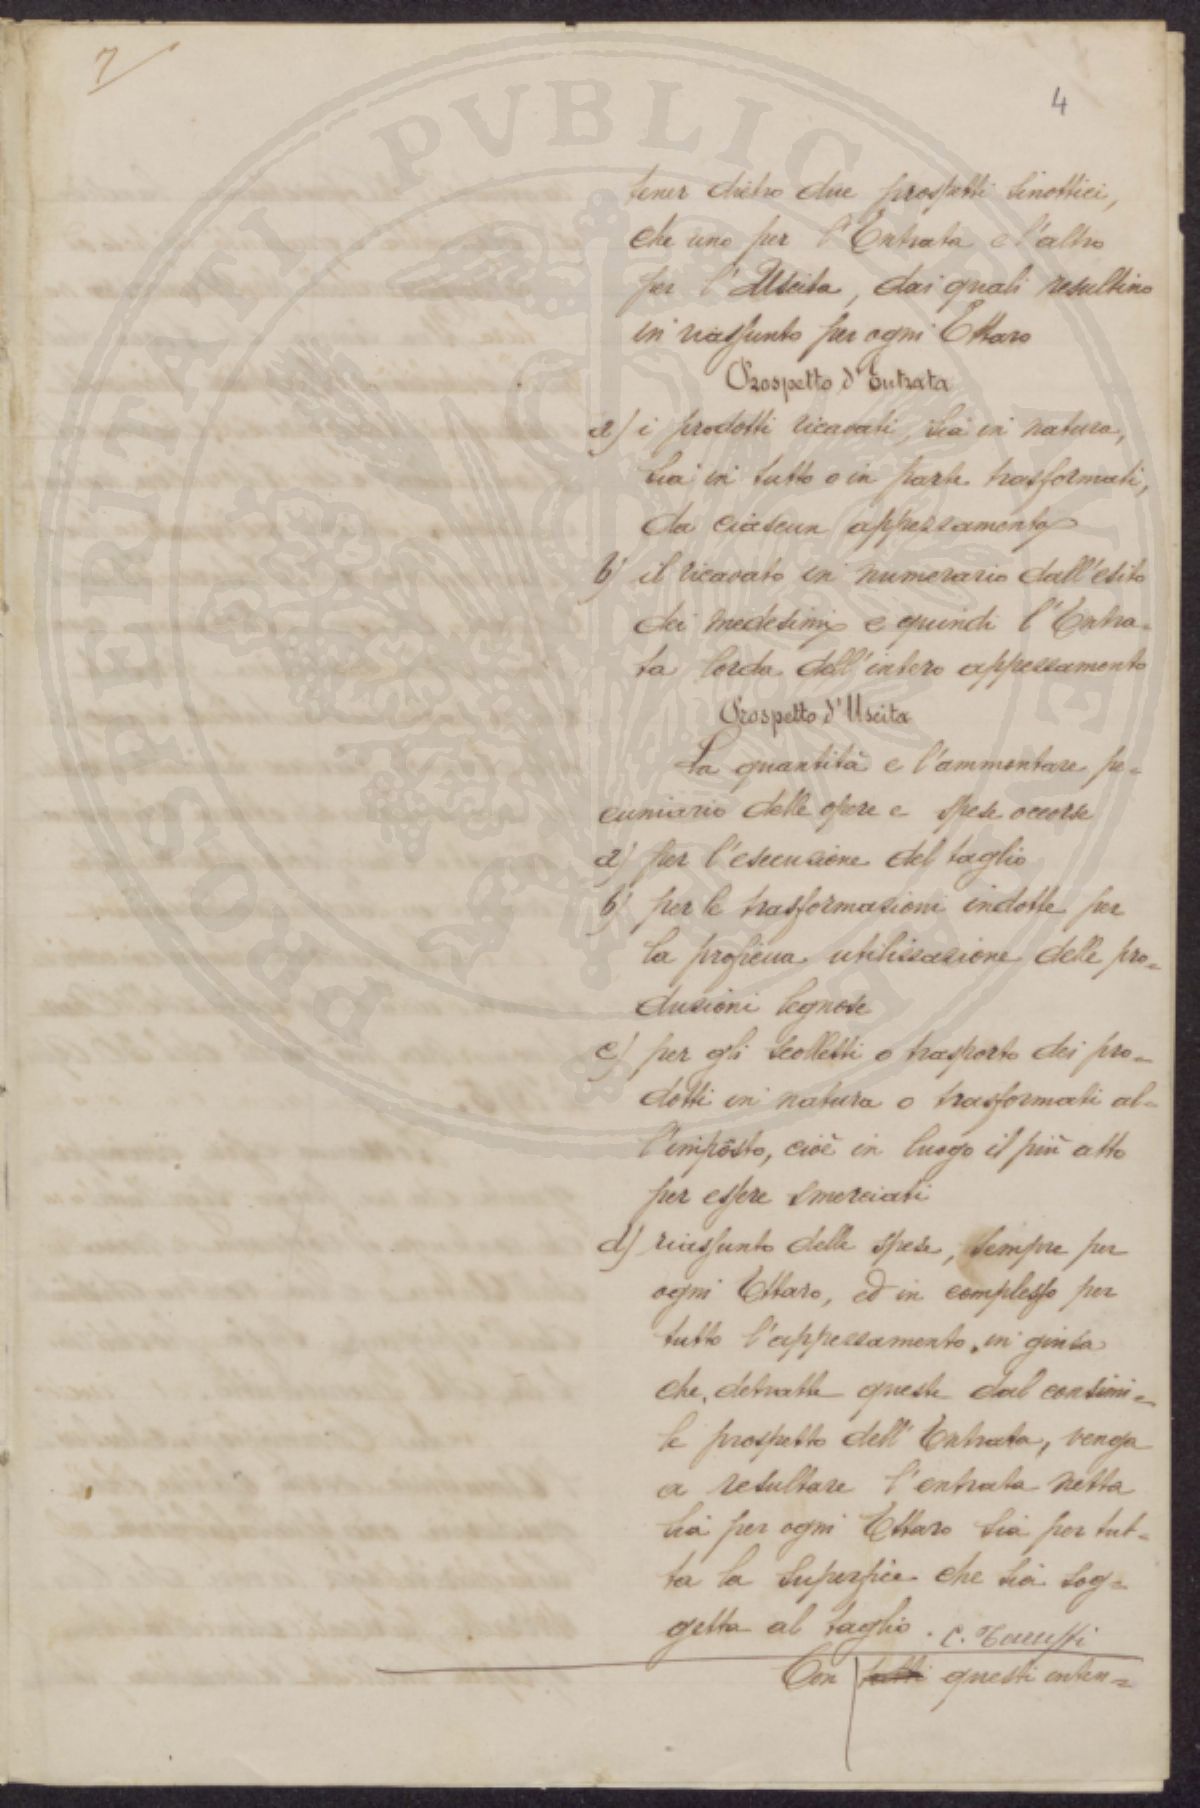 7
4
tener dietro due prospetti sinottici,
che uno per l'Entrata e l'altro
per l'Uscita, dai quali resultino
in riassunto per ogni Ettaro
Prospetto d'Entrata
a) i prodotti ricavati, sia in natura,
sia in tutto o in parte trasformati,
da ciascun appezzamento
b) il ricavato in numerario dall'esito
dei medesimi e quindi l'Entra=
ta lorda dell'intero appezzamento
Prospetto d'Uscita
La quantità e l'ammontare pe=
cuniario delle opere e spese occorse
a) per l'esecuzione del taglio
b) per le trasformazioni indotte per
la proficua utilizzazione delle pro=
duzioni legnose
c) per gli scolletti o trasporto dei pro=
dotti in natura o trasformati al=
l'imposto, cioè in luogo il più atto
per essere smerciati
d) riassunto delle spese, sempre per
ogni Ettaro, ed in complesso per
tutto l'appezzamento, in guisa
che, detratte queste dal consimi=
le prospetto dell'Entrata, venga
a resultare l'entrata netta
sia per ogni Ettaro sia per tut=
ta la superficie che sia sog=
getta al taglio. C. Taruffi
Con tutti questi inten=
PROSPERITATI PUBLICAE